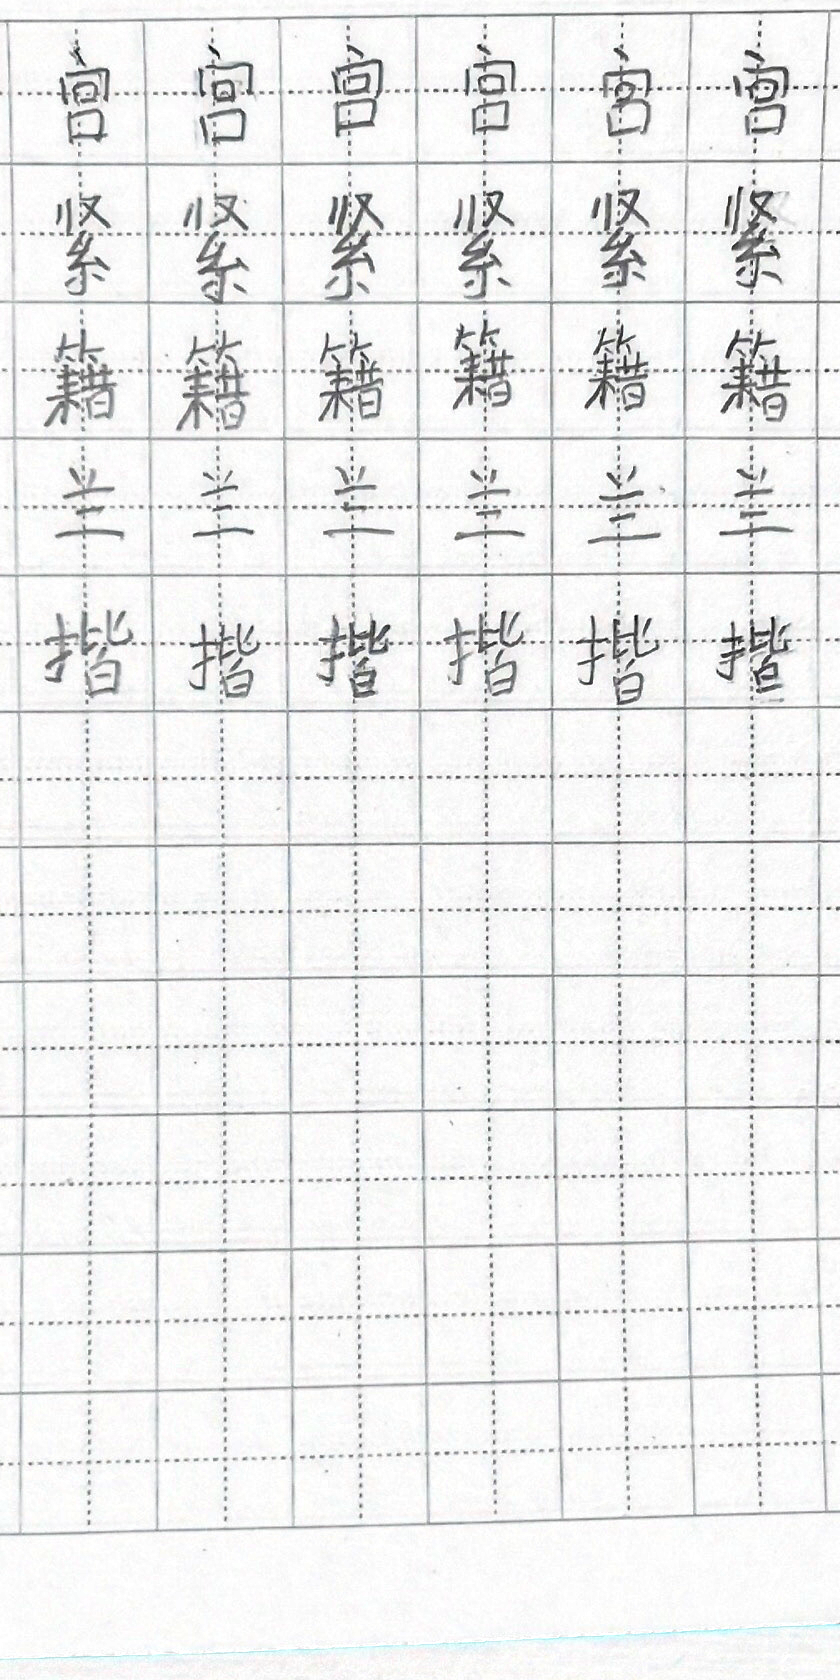 宫宫宫宫宫宫
紧紧紧紧紧紧
籍籍籍籍籍籍
兰兰兰兰兰兰
揩揩揩揩揩揩